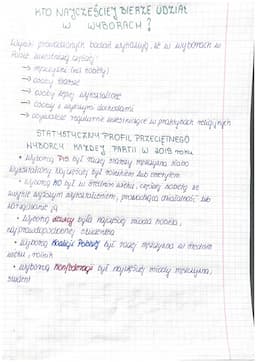 KTO NAJCZĘŚCIEJ BIERZE UDZIAŁ
W WYBORACH?
Wyniki prowadzonych badań wykazują, że w wyborach w
Polsce uczestniczą częściej:
→ mężczyźni (niż kobiety)
→ osoby starsze
→ osoby lepiej wykształcone
→ osoby z wyższymi dochodami
→ obywatele regularnie uczestniczące w praktykach religijnych
STATYSTYCZNY PROFIL PRZECIĘTNEGO
WYBORCY KAŻDEJ PARTII W 2019 roku
• Wyborcą PiS był raczej starszy mężczyzna słabo
wykształcony, najczęściej był rolnikiem lub rencistą
• Wyborcą KO był w średnim wieku, częściej kobieta ze
swoim wyższym wykształceniem, prowadząca działalność lub
zarządzanie ją
• Wyborcą Lewicy była najczęściej młoda kobieta,
najprawdopodobniej studentka
• Wyborcą Koalicji Polskiej był raczej mężczyzna w średnim
wieku, rolnik
• Wyborcą Konfederacji był najczęściej młody mężczyzna,
student